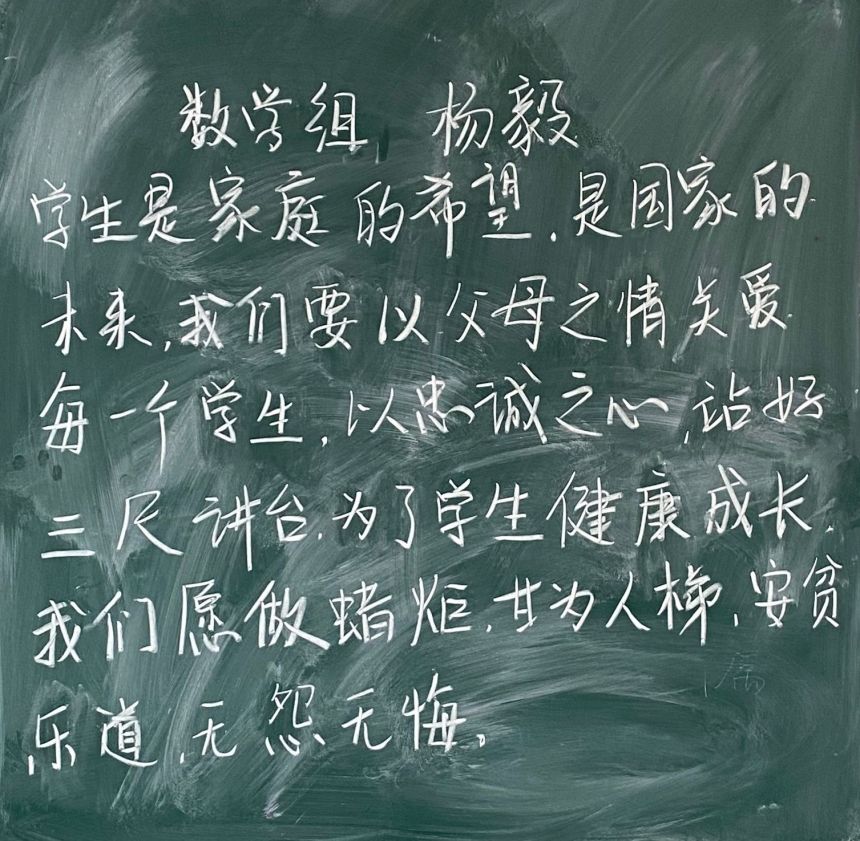 数学组 杨毅
学生是家庭的希望,是国家的
未来,我们要以父母之情关爱
每一个学生,以忠诚之心,站好
三尺讲台,为了学生健康成长,
我们愿做蜡炬,甘为人梯,安贫
乐道,无怨无悔。